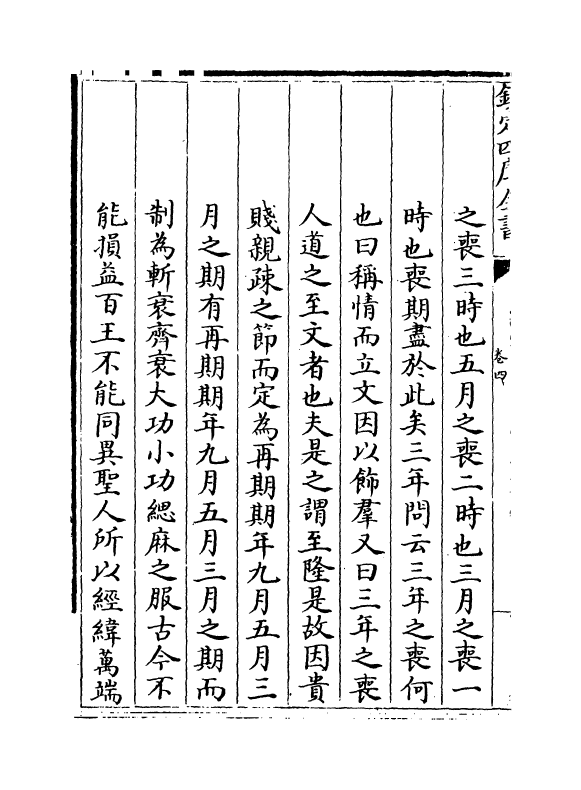 欽定四庫全書
卷四
之喪三時也五月之喪二時也三月之喪一
時也喪期盡於此矣三年問云三年之喪何
也曰稱情而立文因以飾羣又曰三年之喪
人道之至文者也夫是之謂至隆是故因貴
賤親疎之節而定為再期期年九月五月三
月之期有再期期年九月五月三月之期而
制為斬衰齊衰大功小功緦麻之服古今不
能損益百王不能同異聖人所以經緯萬端